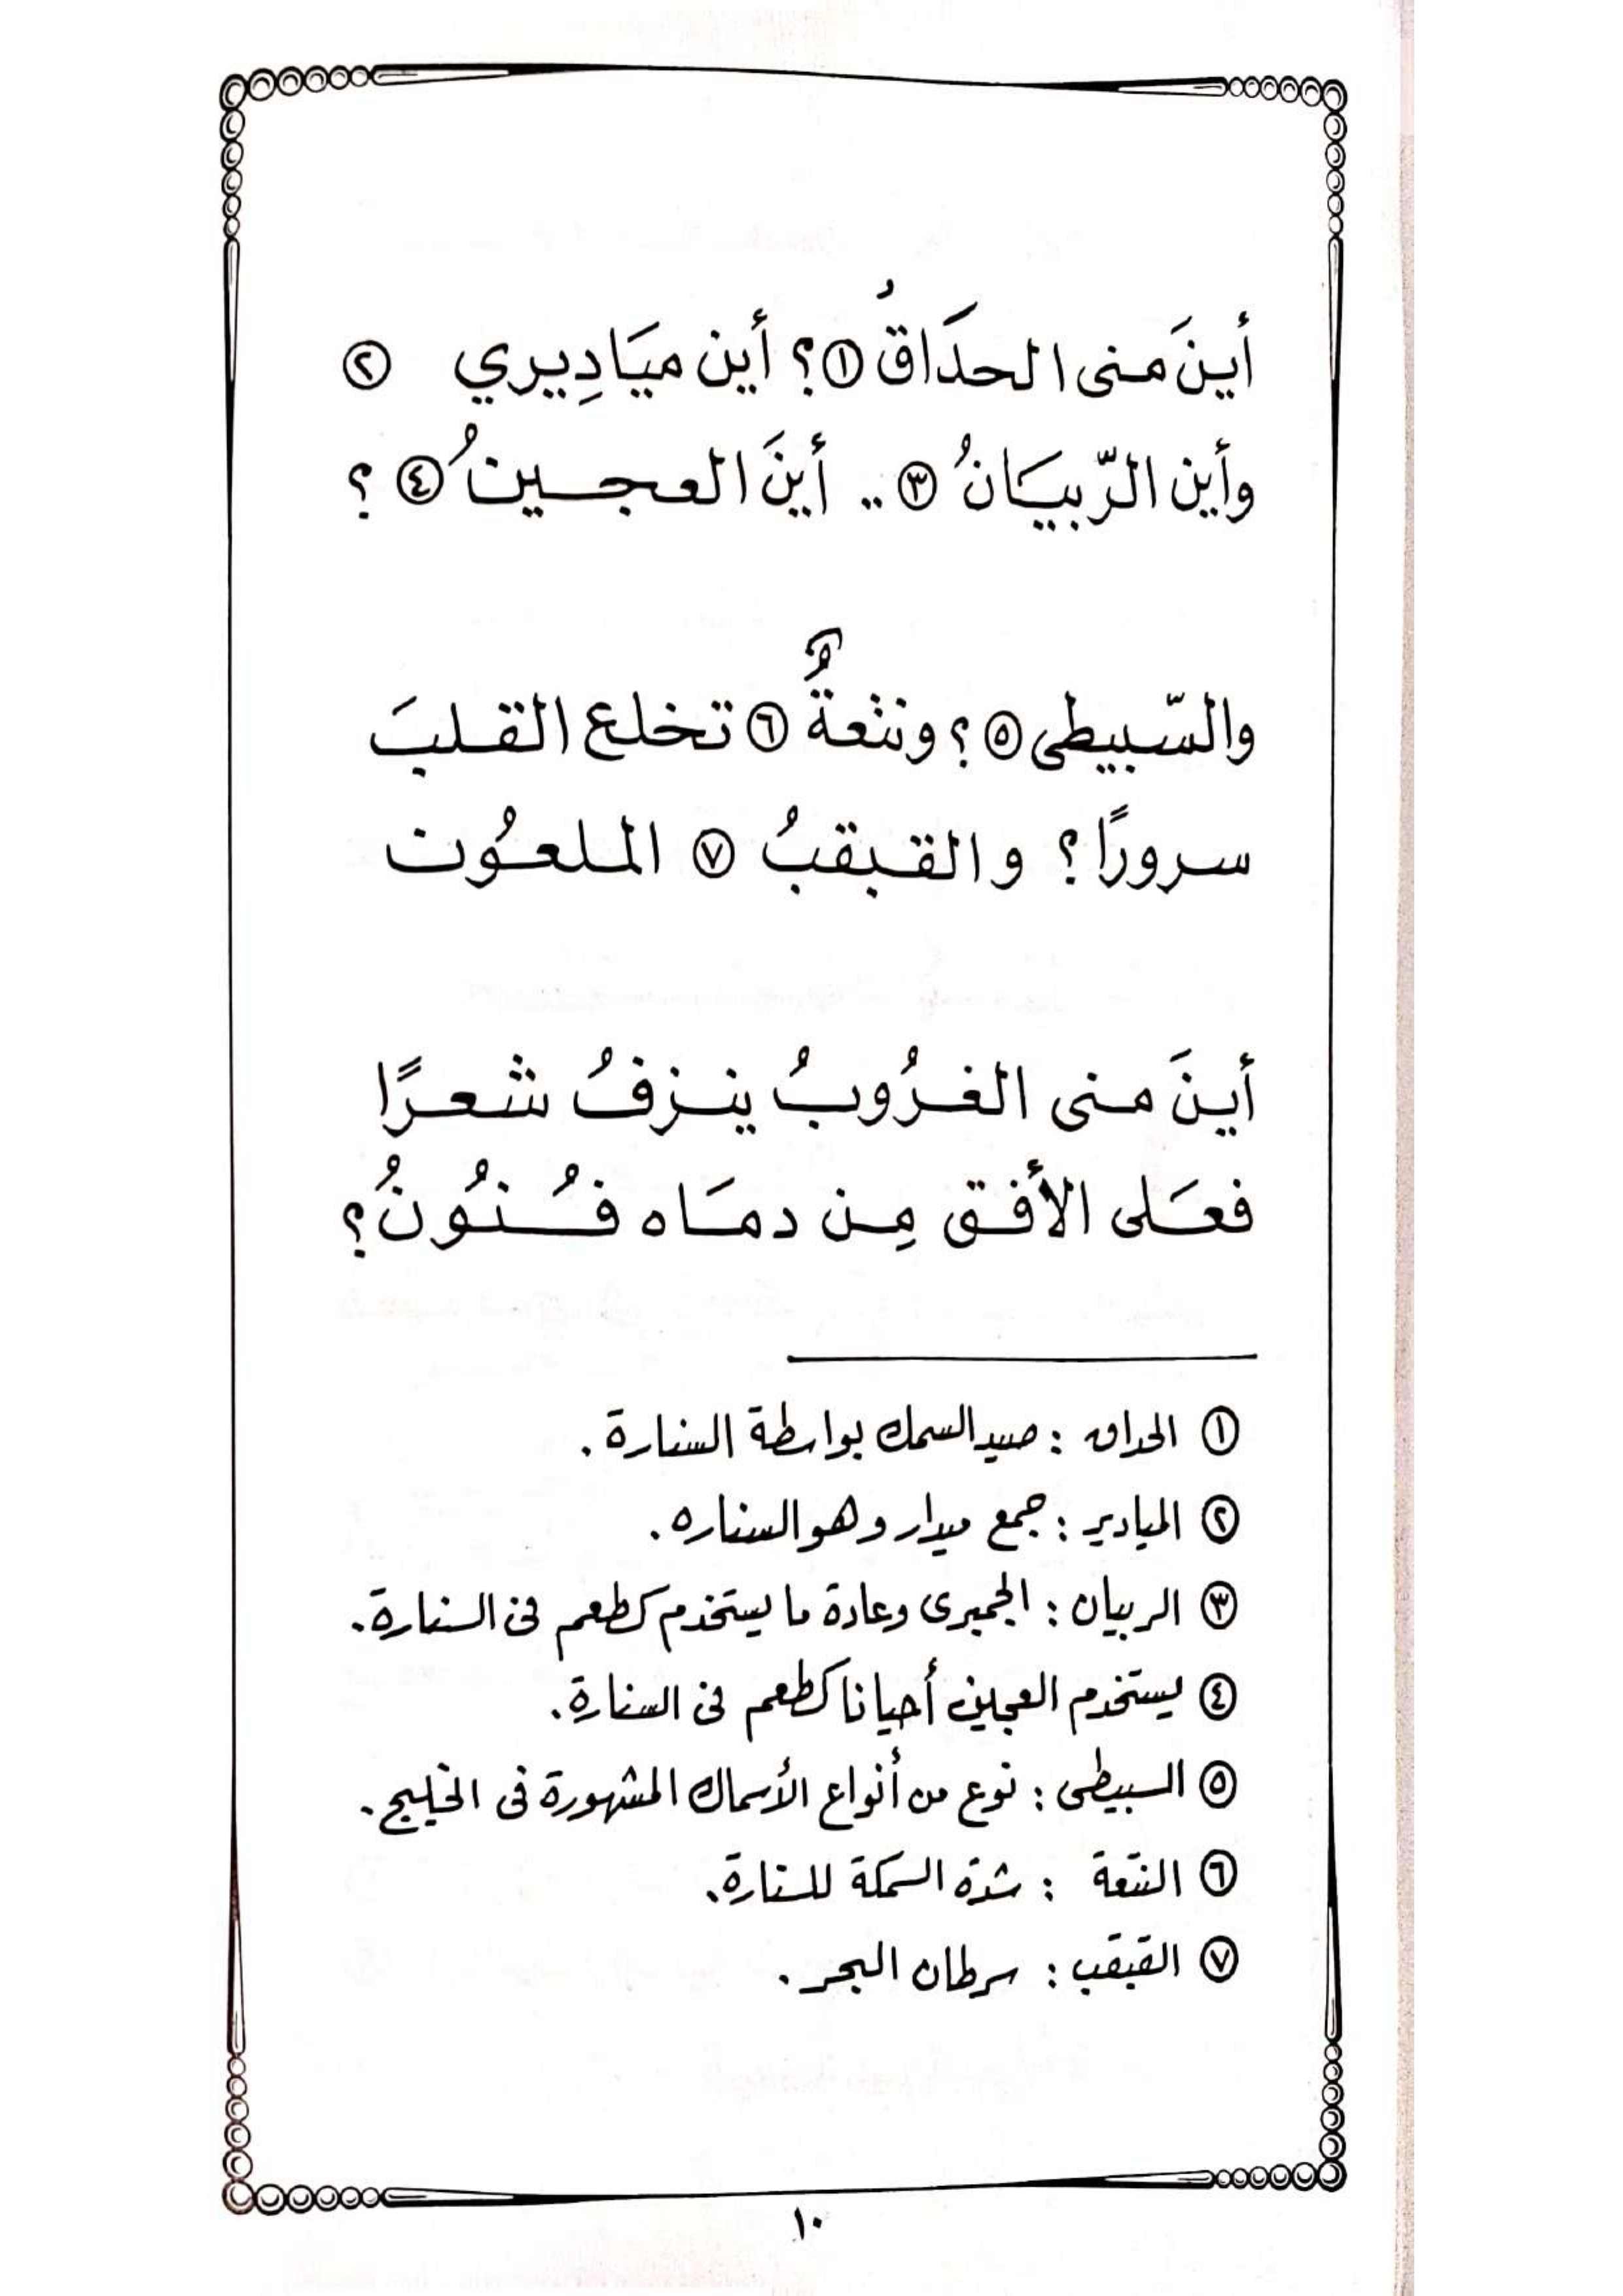 أينَ منى الحدَاقُ ①؟ أين ميَادِيري ②
وأين الرّبيَانُ ③ .. أينَ العجينُ ④ ؟
والسّبيطى ⑤ ؟ ونتعةٌ ⑥ تخلع القلبَ
سرورًا ؟ والقبقبُ ⑦ الملعُون
أينَ منى الغرُوبُ ينزفُ شعرًا
فعَلى الأفق مِن دمَاه فُنُونُ؟
① الحداق : صيد السمك بواسطة السنارة .
② الميادير : جمع ميدار وهو السناره .
③ الربيان : الجمبرى وعادة ما يستخدم كطعم فى السنارة .
④ يستخدم العجين أحيانا كطعم فى السنارة .
⑤ السبيطى : نوع من أنواع الأسماك المشهورة فى الخليج .
⑥ النتعة : شدة السمكة للسنارة .
⑦ القبقب : سرطان البحر .
١٠